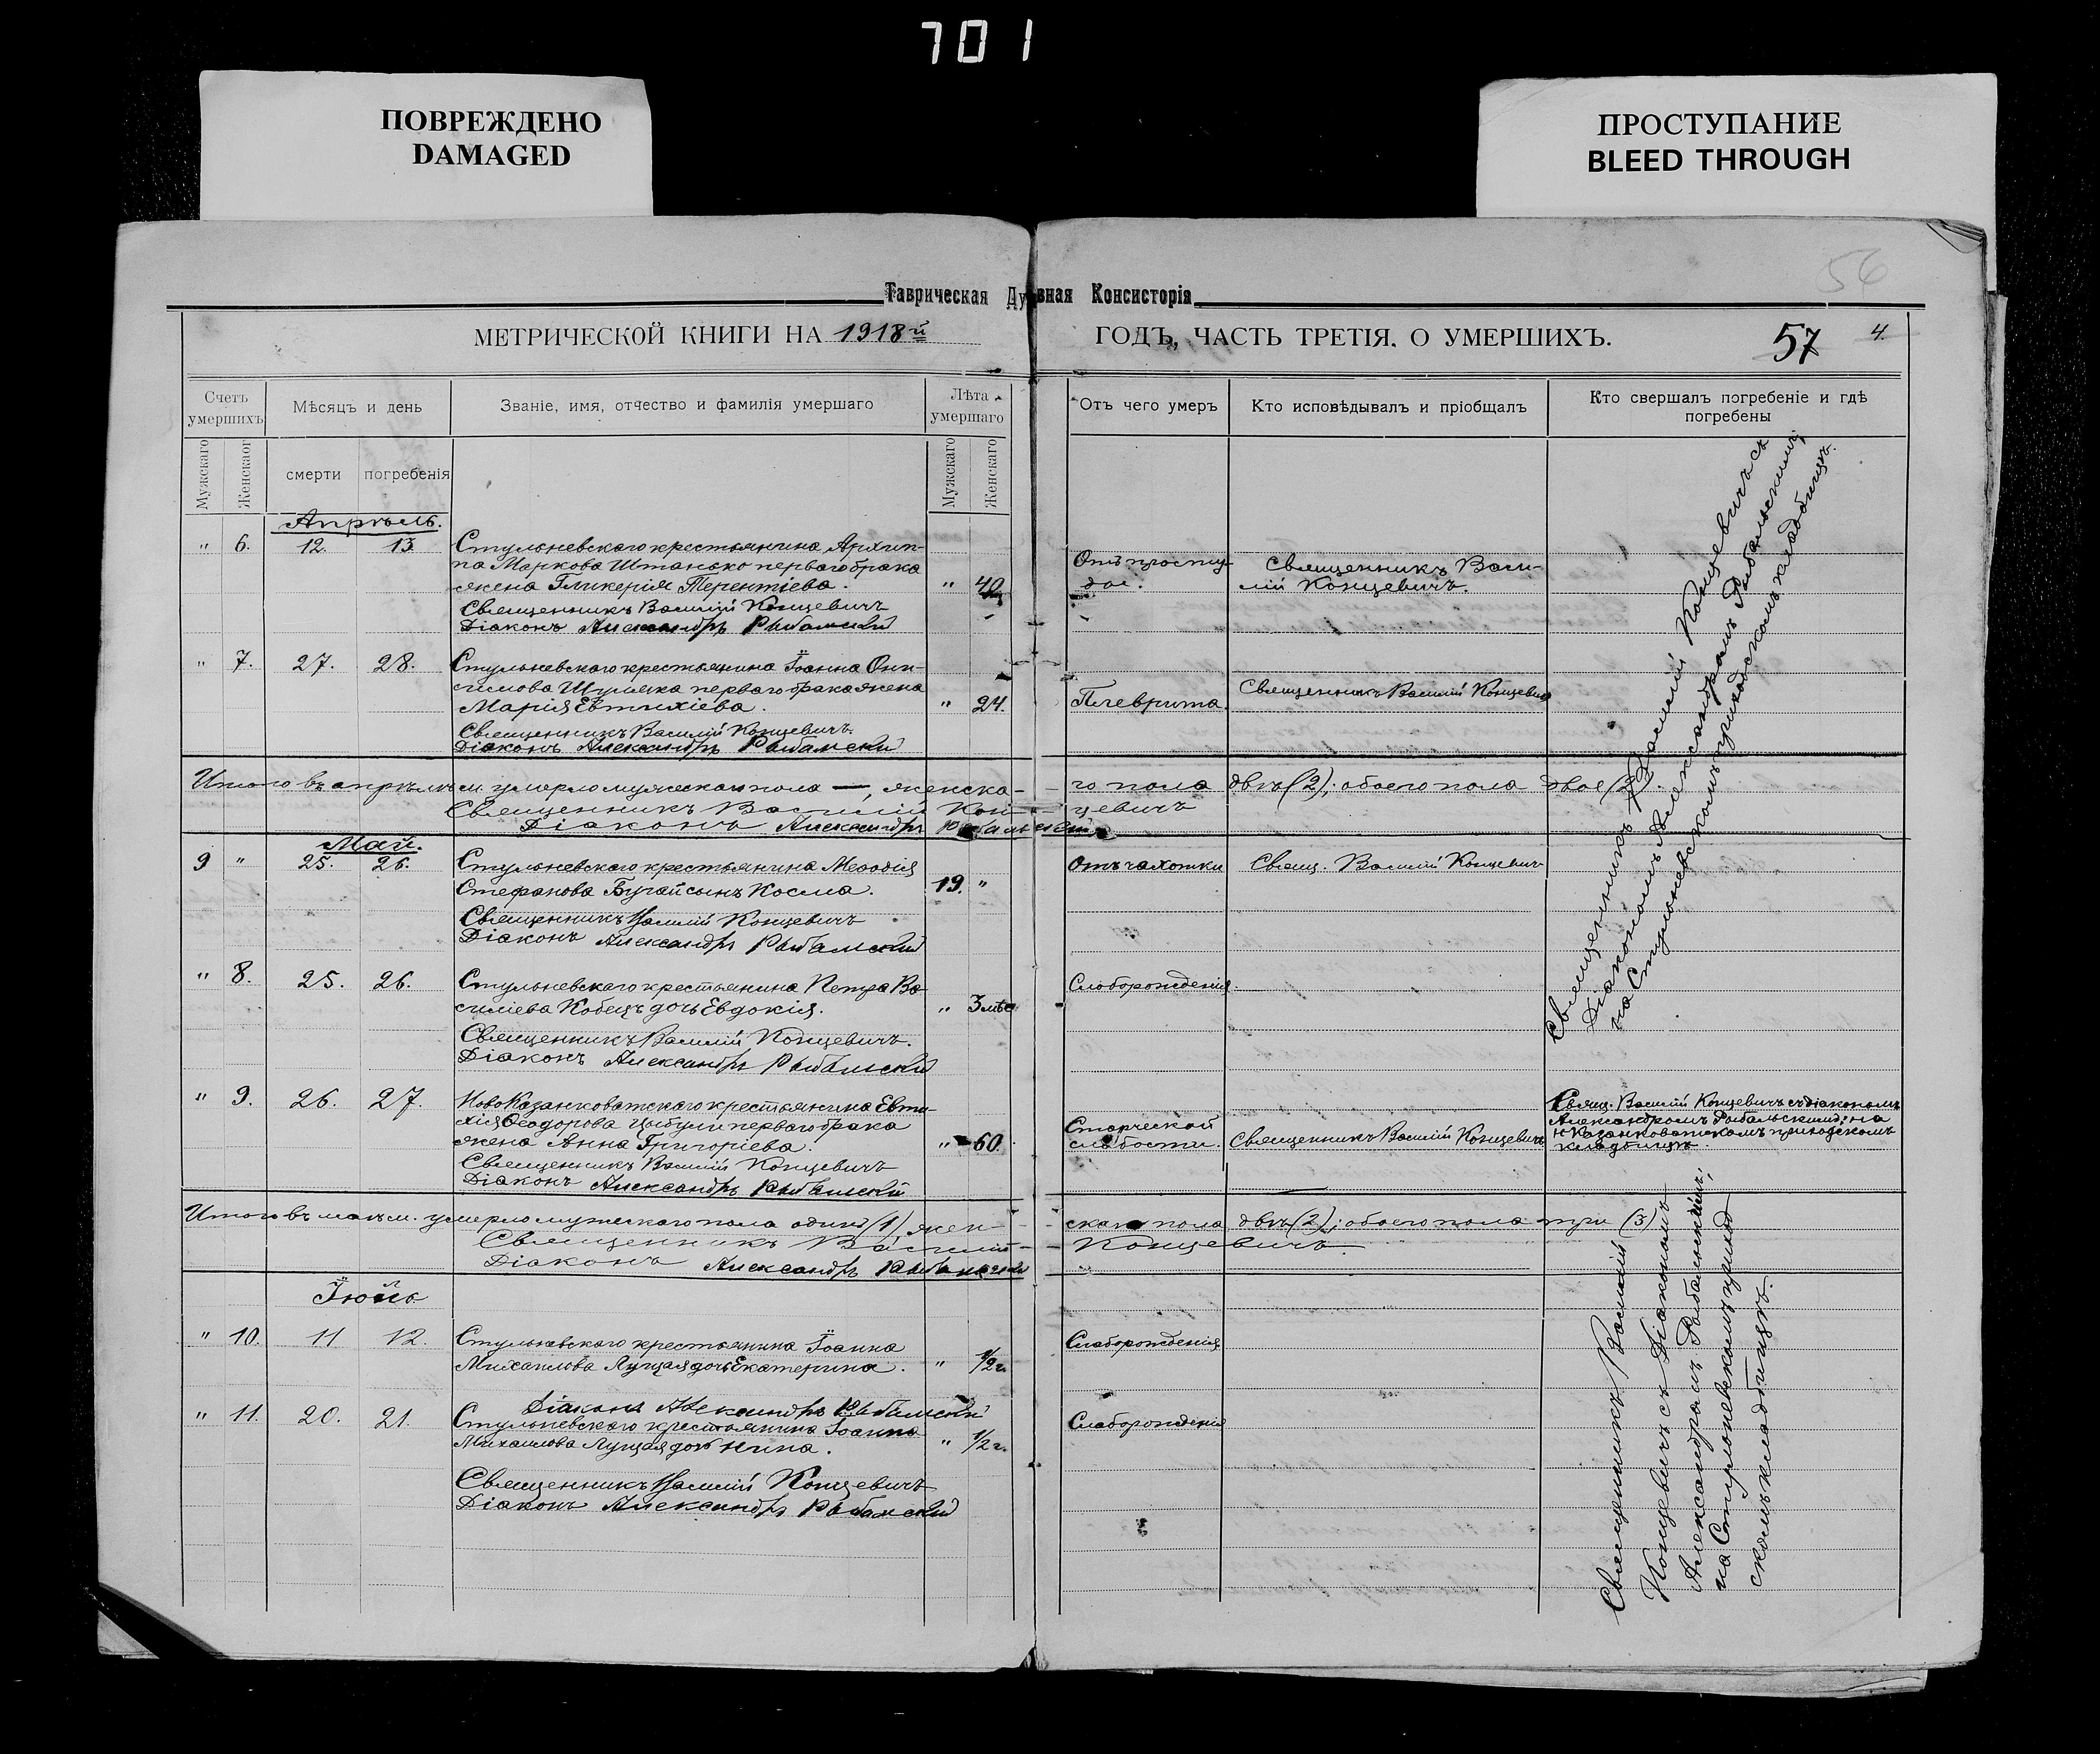 701
ПОВРЕЖДЕНО
DAMAGED
ПРОСТУПАНИЕ
BLEED THROUGH
56
Таврическая Духовная Консисторія
МЕТРИЧЕСКОЙ КНИГИ НА 1918й ГОДЪ, ЧАСТЬ ТРЕТІЯ, О УМЕРШИХЪ.
57
4.
Счетъ умершихъ
Мѣсяцъ и день
Званіе, имя, отчество и фамилія умершаго
Лѣта умершаго
Отъ чего умеръ
Кто исповѣдывалъ и пріобщалъ
Кто свершалъ погребеніе и гдѣ погребены
Мужскаго
Женскаог
смерти
погребенія
Мужскаго
Женскаго
Апрѣль.
" 6. 12. 13. Стульневскаго крестьянина Архип-
па Маркова Штанько перваго брака
жена Гликерія Терентіева. " 40.
Отъ просту-
ды.
Священникъ Васи-
лій Концевичъ.
Священникъ Василій Концевичъ
Діаконъ Александръ Рыбальскій
" 7. 27. 28. Стульневскаго крестьянина Іоанна Они-
симова Шуляка перваго брака жена
Марія Евтихіева. " 24.
Плеврита
Священникъ Василій Концевичъ
Священникъ Василій Концевичъ.
Діаконъ Александръ Рыбальскій
Итого въ апрѣлѣ м. умерло мужескаго пола —, женска-
го пола двѣ (2); обоего пола двое (2).
Священникъ Василій Концевичъ
Діаконъ Александръ Рыбальскій
Май.
9 " 25. 26. Стульневскаго крестьянина Меѳодія
Стефанова Бугай сынъ Косма. 19. "
Отъ чахотки
Свящ. Василій Концевичъ
Священникъ Василій Концевичъ
Діаконъ Александръ Рыбальскій
" 8. 25. 26. Стульневскаго крестьянина Петра Ва-
силіева Кобецъ дочь Евдокія. " 3 мѣс
Слаборожденія.
Священникъ Василій Концевичъ.
Діаконъ Александръ Рыбальскій
Священникъ Василій Концевичъ съ
Діакономъ Александромъ Рыбальскимъ,
на Стульневскомъ приходскомъ кладбищѣ.
" 9. 26. 27. Ново Казанковатскаго крестьянина Евти-
хія Ѳеодорова Цыбули перваго брака
жена Анна Григоріева. " 60.
Старческой
слабости.
Священникъ Василій Концевичъ
Свящ. Василій Концевичъ съ діакономъ
Александромъ Рыбальскимъ; на
Н Казанковатскомъ приходскомъ
кладбищѣ.
Священникъ Василій Концевичъ
Діаконъ Александръ Рыбальскій
Итого въ маѣ м. умерло мужескаго пола одинъ (1), жен-
скаго пола двѣ (2); обоего пола три (3)
Священникъ Василій Концевичъ.
Діаконъ Александръ Рыбальскій
" 10. 11 12. Стульневскаго крестьянина Іоанна
Михаилова Луцая дочь Екатерина. " 1/2 г.
Слаборожденія
Діаконъ Александръ Рыбальскій
" 11. 20. 21. Стульневскаго крестьянина Іоанна
Михаилова Луцая дочь Нина. " 1/2 г.
Слаборожденія
Священникъ Василій Концевичъ
Діаконъ Александръ Рыбальскій
Священникъ Василій
Концевичъ съ Діакономъ
Александромъ Рыбальскимъ;
на Стульневскомъ приход
скомъ кладбищѣ.